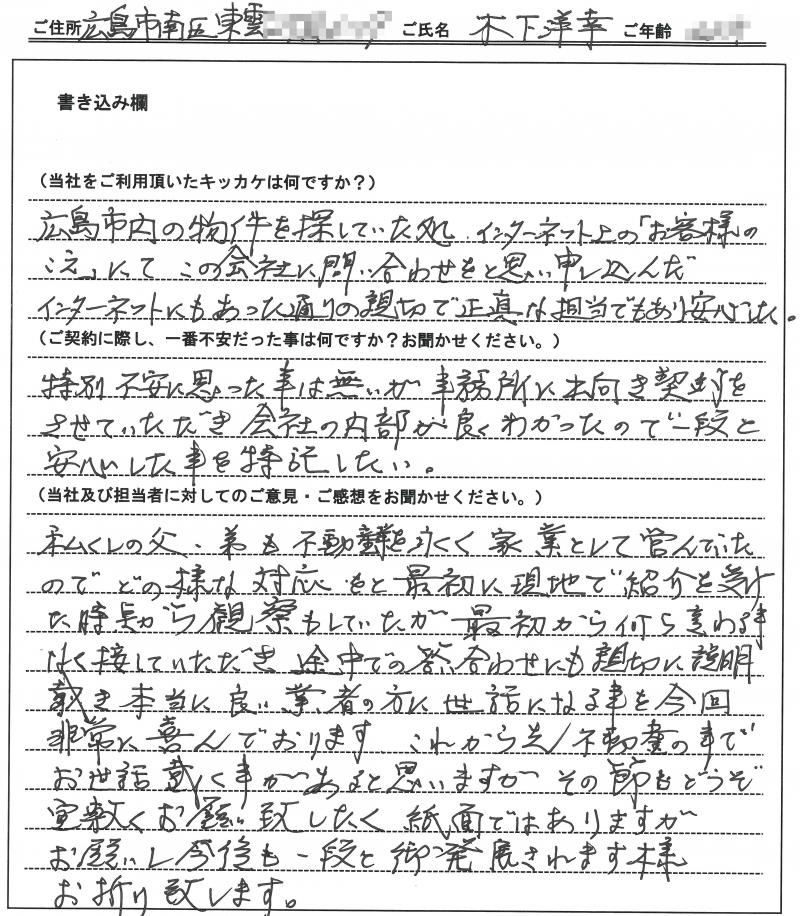 ご住所 広島市南区東雲 ご氏名 木下洋幸 ご年齢
書き込み欄
(当社をご利用頂いたキッカケは何ですか?)
広島市内の物件を探していた処、インターネット上の「お客様の
こえ」にて この会社に問い合わせをと思い申し込んだ
インターネットにもあった通りの親切で正直な担当でもあり安心した。
(ご契約に際し、一番不安だった事は何ですか?お聞かせください。)
特別不安に思った事は無いが 事務所に出向き契約を
させていただき 会社の内部が良くわかったので一段と
安心した事を特記したい。
(当社及び担当者に対してのご意見・ご感想をお聞かせください。)
私くしの父、弟も不動産を永く家業として営んでいた
のでどの様な対応をと最初に現地で紹介を受け
た時点から観察もしていたが 最初から何ら変わる事
なく接していただき 途中での答い合わせにも親切に説明
戴き本当に良い業者の方に世話になる事を今回
非常に喜んでおります これから先 不動産の事で
お世話戴く事があると思いますが その節もどうぞ
宜敷くお願い致したく 紙面ではありますが
お願いし今後も一段と御発展されます様
お祈り致します。